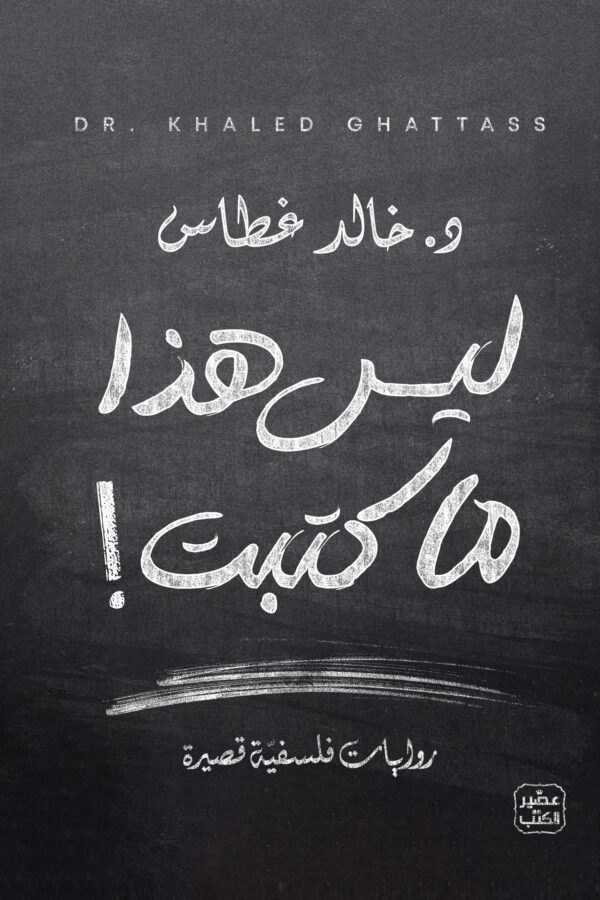 DR. KHALED GHATTASS
د. خالد غطاس
ليس هذا
ما كتبت!
روايات فلسفيّة قصيرة
عصير
الكتب